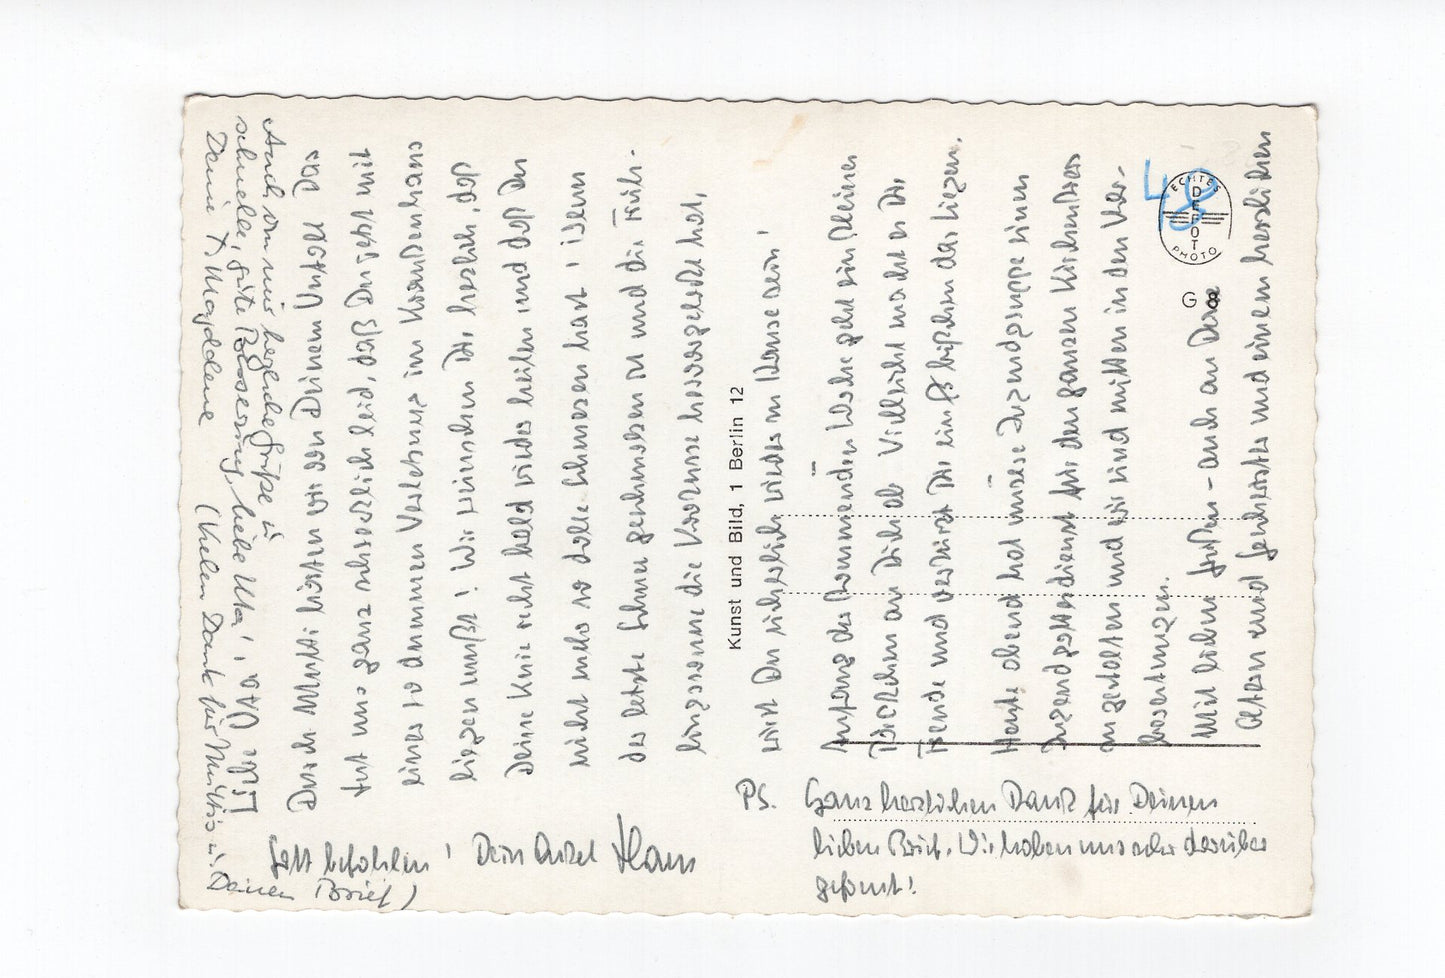 Liebe Uta!
Durch Mutti hörten wir von Deinem Unfall. Das
tut uns ganz schrecklich leid, daß Du jetzt mit
einer so dummen Verletzung im Krankenhaus
liegen mußt! Wir wünschen Dir herzlich, daß
Deine Knie recht bald wieder heilen und daß Du
nicht mehr so dolle Schmerzen hast! Wenn
der letzte Schnee geschmolzen ist und die Früh-
lingssonne die Krokusse hervorgelockt hat,
wirst Du sicherlich wieder zu Hause sein!
Anfang der kommenden Woche geht ein kleines
Päckchen an Dich ab. Vielleicht macht es Dir
Freude und versüßt Dir ein bißchen das Liegen.
Heute abend hat unsere Jugendgruppe einen
Jugendgottesdienst für den ganzen Kirchenkreis
zu gestalten und wir sind mitten in den Vor-
bereitungen.
Mit lieben Grüßen - auch an Deine
Eltern und Geschwister und einem herzlichen
Gott befohlen! Dein Onkel Hans
PS. Ganz herzlichen Dank für Deinen
lieben Brief. Wir haben uns sehr darüber
gefreut!
Auch von mir herzliche Grüße u.
schnelle, gute Besserung, liebe Uta!
Deine T. Magdalene (Vielen Dank für Muttis u.
Deinen Brief)
Kunst und Bild, 1 Berlin 12
48
ECHTES
DEPOT
PHOTO
G 8